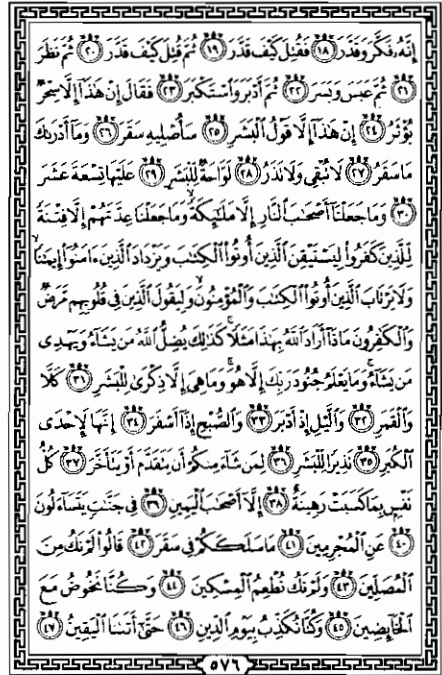 إِنَّهُۥ فَكَّرَ وَقَدَّرَ ١٨ فَقُتِلَ كَيْفَ قَدَّرَ ١٩ ثُمَّ قُتِلَ كَيْفَ قَدَّرَ ٢٠ ثُمَّ نَظَرَ
٢١ ثُمَّ عَبَسَ وَبَسَرَ ٢٢ ثُمَّ أَدْبَرَ وَٱسْتَكْبَرَ ٢٣ فَقَالَ إِنْ هَٰذَآ إِلَّا سِحْرٌ
يُؤْثَرُ ٢٤ إِنْ هَٰذَآ إِلَّا قَوْلُ ٱلْبَشَرِ ٢٥ سَأُصْلِيهِ سَقَرَ ٢٦ وَمَآ أَدْرَىٰكَ
مَا سَقَرُ ٢٧ لَا تُبْقِى وَلَا تَذَرُ ٢٨ لَوَّاحَةٌ لِّلْبَشَرِ ٢٩ عَلَيْهَا تِسْعَةَ عَشَرَ
٣٠ وَمَا جَعَلْنَآ أَصْحَٰبَ ٱلنَّارِ إِلَّا مَلَٰٓئِكَةً وَمَا جَعَلْنَا عِدَّتَهُمْ إِلَّا فِتْنَةً
لِّلَّذِينَ كَفَرُوا۟ لِيَسْتَيْقِنَ ٱلَّذِينَ أُوتُوا۟ ٱلْكِتَٰبَ وَيَزْدَادَ ٱلَّذِينَ ءَامَنُوٓا۟ إِيمَٰنًا
وَلَا يَرْتَابَ ٱلَّذِينَ أُوتُوا۟ ٱلْكِتَٰبَ وَٱلْمُؤْمِنُونَ وَلِيَقُولَ ٱلَّذِينَ فِى قُلُوبِهِم مَّرَضٌ
وَٱلْكَٰفِرُونَ مَاذَآ أَرَادَ ٱللَّهُ بِهَٰذَا مَثَلًا كَذَٰلِكَ يُضِلُّ ٱللَّهُ مَن يَشَآءُ وَيَهْدِى
مَن يَشَآءُ وَمَا يَعْلَمُ جُنُودَ رَبِّكَ إِلَّا هُوَ وَمَا هِىَ إِلَّا ذِكْرَىٰ لِلْبَشَرِ ٣١ كَلَّا
وَٱلْقَمَرِ ٣٢ وَٱلَّيْلِ إِذْ أَدْبَرَ ٣٣ وَٱلصُّبْحِ إِذَآ أَسْفَرَ ٣٤ إِنَّهَا لَإِحْدَى
ٱلْكُبَرِ ٣٥ نَذِيرًا لِّلْبَشَرِ ٣٦ لِمَن شَآءَ مِنكُمْ أَن يَتَقَدَّمَ أَوْ يَتَأَخَّرَ ٣٧ كُلُّ
نَفْسٍۭ بِمَا كَسَبَتْ رَهِينَةٌ ٣٨ إِلَّآ أَصْحَٰبَ ٱلْيَمِينِ ٣٩ فِى جَنَّٰتٍ يَتَسَآءَلُونَ
٤٠ عَنِ ٱلْمُجْرِمِينَ ٤١ مَا سَلَكَكُمْ فِى سَقَرَ ٤٢ قَالُوا۟ لَمْ نَكُ مِنَ
ٱلْمُصَلِّينَ ٤٣ وَلَمْ نَكُ نُطْعِمُ ٱلْمِسْكِينَ ٤٤ وَكُنَّا نَخُوضُ مَعَ
ٱلْخَآئِضِينَ ٤٥ وَكُنَّا نُكَذِّبُ بِيَوْمِ ٱلدِّينِ ٤٦ حَتَّىٰٓ أَتَىٰنَا ٱلْيَقِينُ ٤٧
٥٧٦